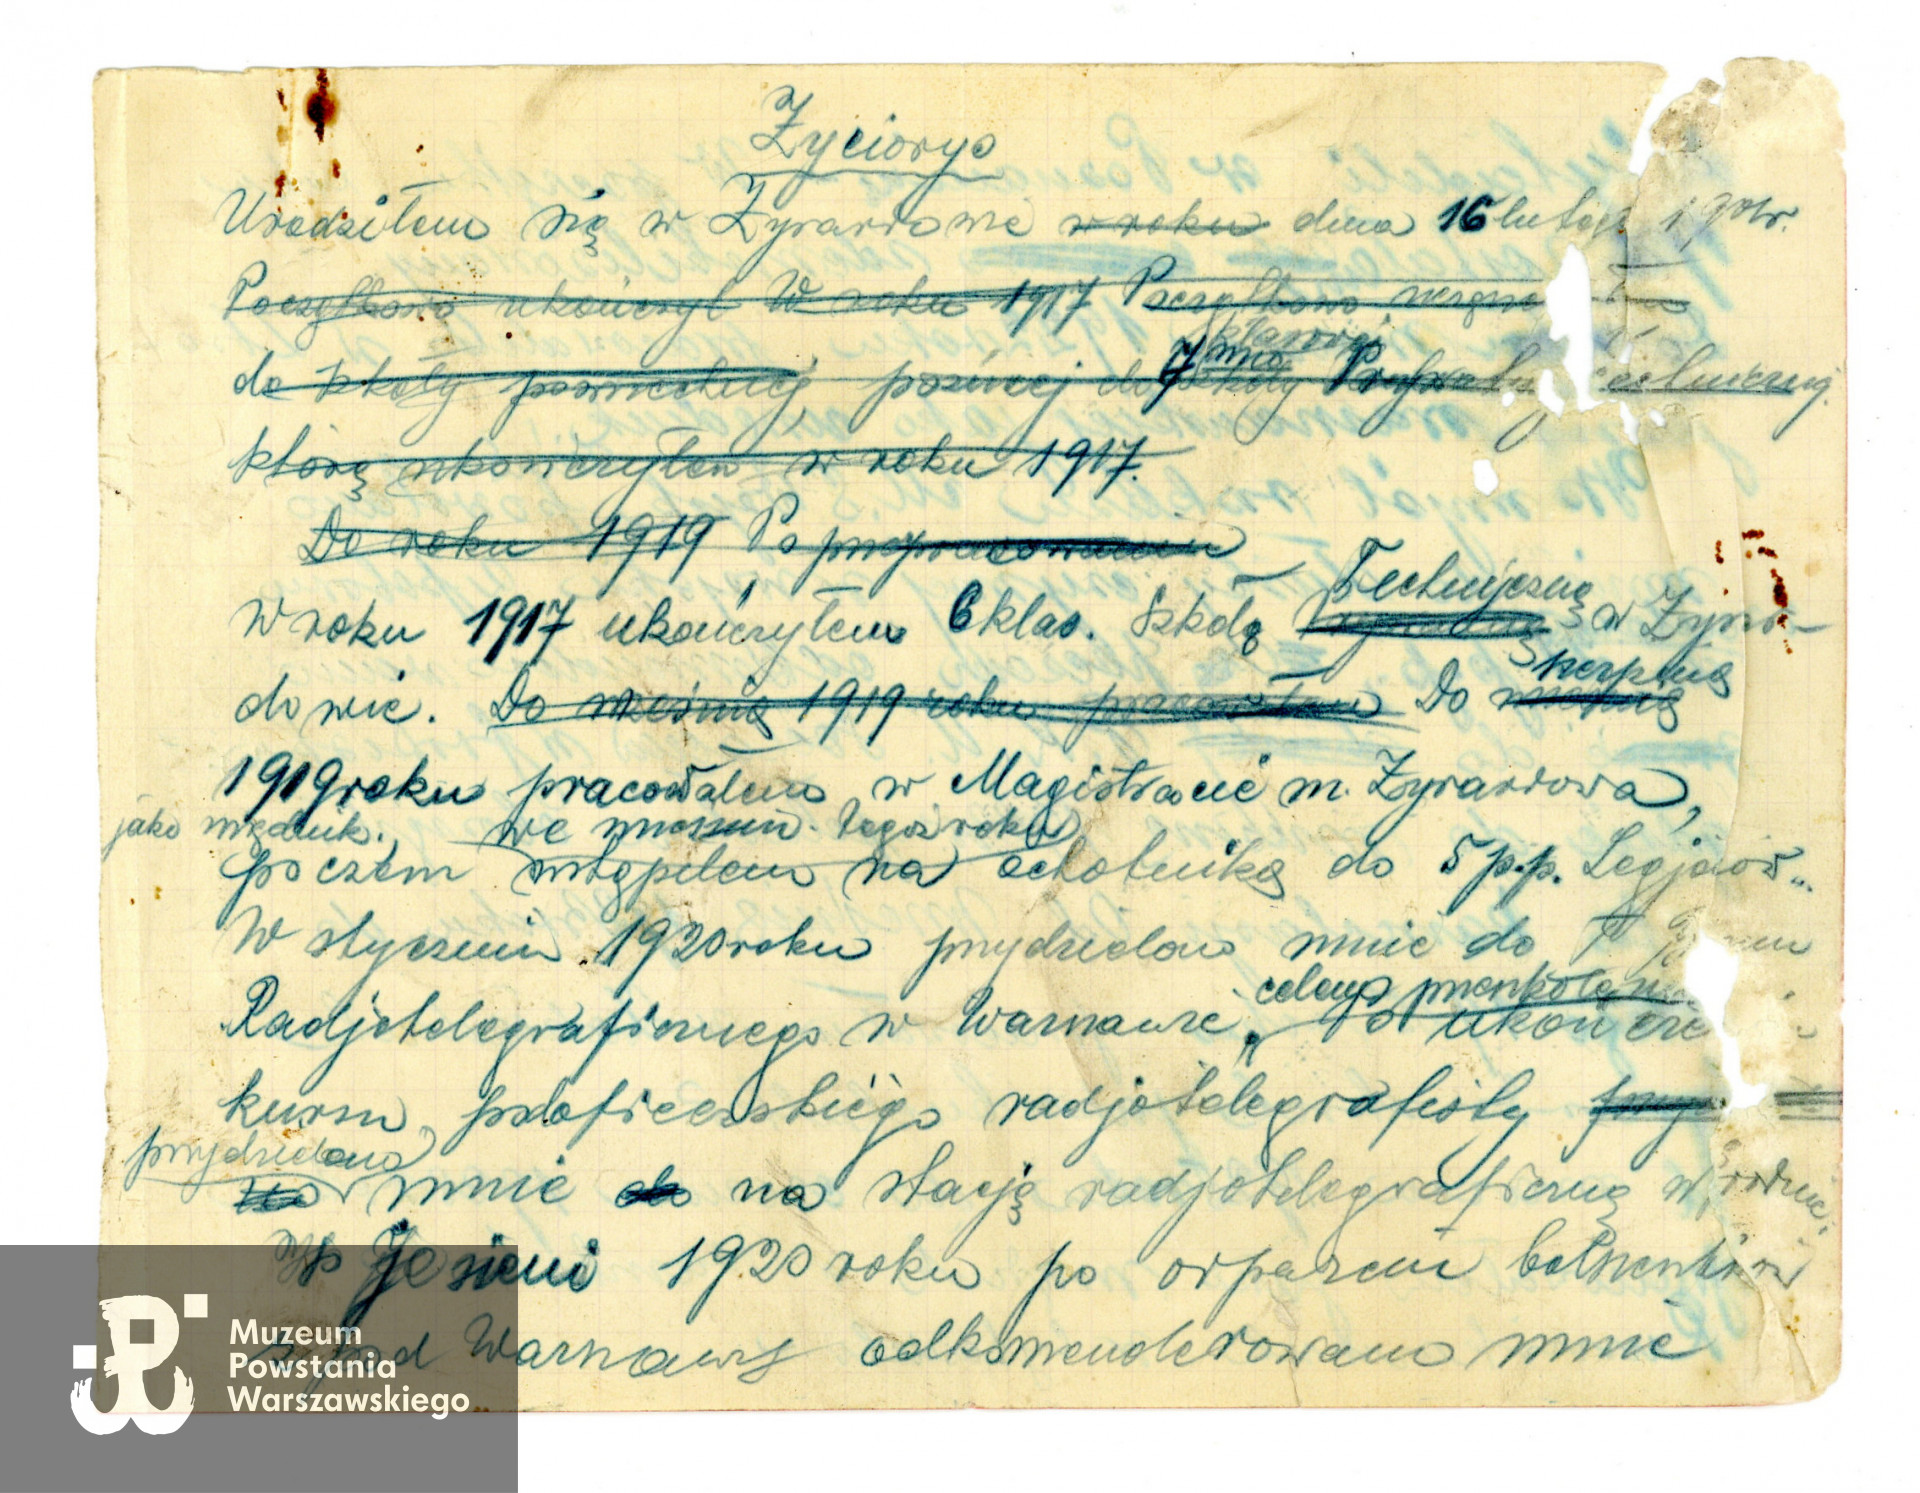 Życiorys
Urodziłem się w Żyrardowie w roku dnia 16 lutego
Początkowo ukończył W roku 1917 Początkowo
do szkoły powszechnej, później do szkoły
którą ukończyłem w roku 1917.
Do roku 1919 Po przepracowaniu
W roku 1917 ukończyłem 6 klas. Szkołę Techniczną w Żyrar-
dowie. Do września 1919 roku pracowałem Do sierpnia
1919 roku pracowałem w Magistracie m. Żyrardowa,
jako urzędnik. we wrześniu tegoż roku
poczem wstąpiłem na ochotnika do 5 p.p. Legjonów.
W styczniu 1920 roku przydzielono mnie do
celem przeszkolenia
Radjotelegraficznego w Warszawie, Po
kursu podoficerskiego radjotelegrafisty
przydzielono
mnie do na stację radjotelegraficzną w
W Jesieni 1920 roku po odparciu bolszewików
z pod Warszawy odkomenderowano mnie
Muzeum
Powstania
Warszawskiego